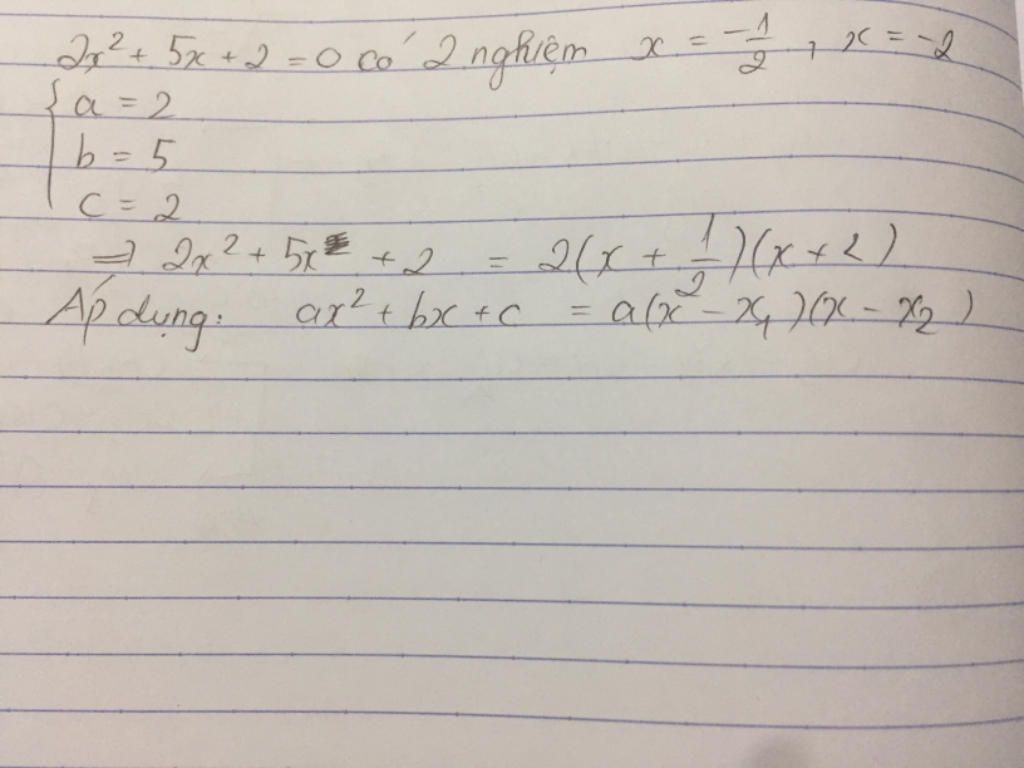 2x² + 5x + 2 = 0 có 2 nghiệm x = -1/2, x = -2
{ a = 2
b = 5
c = 2
⇒ 2x² + 5x + 2 = 2(x + 1/2)(x + 2)
Áp dụng: ax² + bx + c = a(x - x₁)(x - x₂)